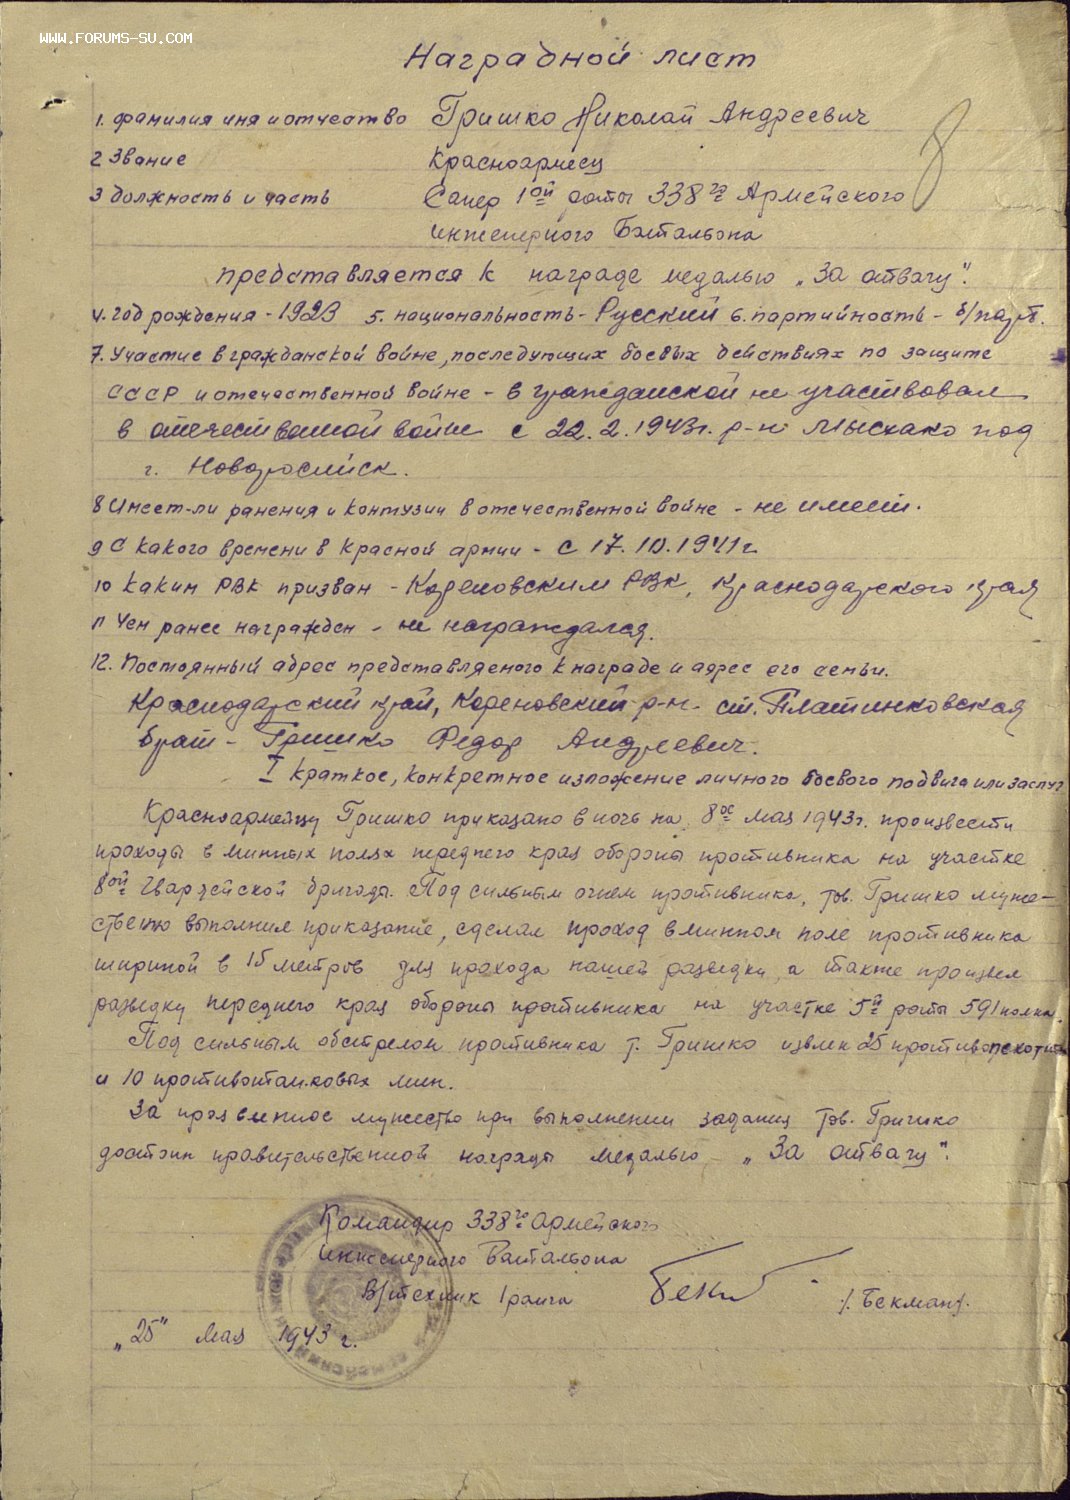 WWW.FORUMS-SU.COM
Наградной лист
1. Фамилия имя и отчество Гришко Николай Андреевич
2 Звание Красноармеец
3 Должность и часть Сапер 1ой роты 338го Армейского
инженерного Батальона
представляется к награде медалью „За отвагу".
4. год рождения - 1923 5. национальность - Русский 6. партийность - б/парт.
7. Участие в гражданской войне, последующих боевых действиях по защите
СССР и отечественной войне - в гражданской не участвовал
в отечественной войне с 22.2.1943г. р-н Мысхако под
г. Новоросийск.
8 Имеет-ли ранения и контузии в отечественной войне - не имеет.
9 С какого времени в Красной армии - с 17.10.1941г
10 каким РВК призван - Кореновским РВК, Краснодарского края
11 Чем ранее награжден - не награждался.
12. Постоянный адрес представляемого к награде и адрес его семьи.
Краснодарский край, Кореновский р-н. ст. Платинковская
брат - Гришко Федор Андреевич.
I Краткое, конкретное изложение личного боевого подвига или заслуг
Красноармейцу Гришко приказано в ночь на 8ое мая 1943г. произвести
проходы в минных полях переднего края обороны противника на участке
8ой Гвардейской бригады. Под сильным огнем противника, тов. Гришко муже-
ственно выполнил приказание, сделал проход в минном поле противника
шириной в 15 метров для прохода нашей разведки, а также произвел
разведку переднего края обороны противника на участке 5й роты 591 полка.
Под сильным обстрелом противника т. Гришко извлек 25 противопехотных
и 10 противотанковых мин.
За проявленное мужество при выполнении задания тов. Гришко
достоин правительственной награды медалью - „За отвагу".
Командир 338го Армейского
инженерного Батальона
В/техник 1 ранга /. Бекман/.
„25" Мая 1943 г.
8